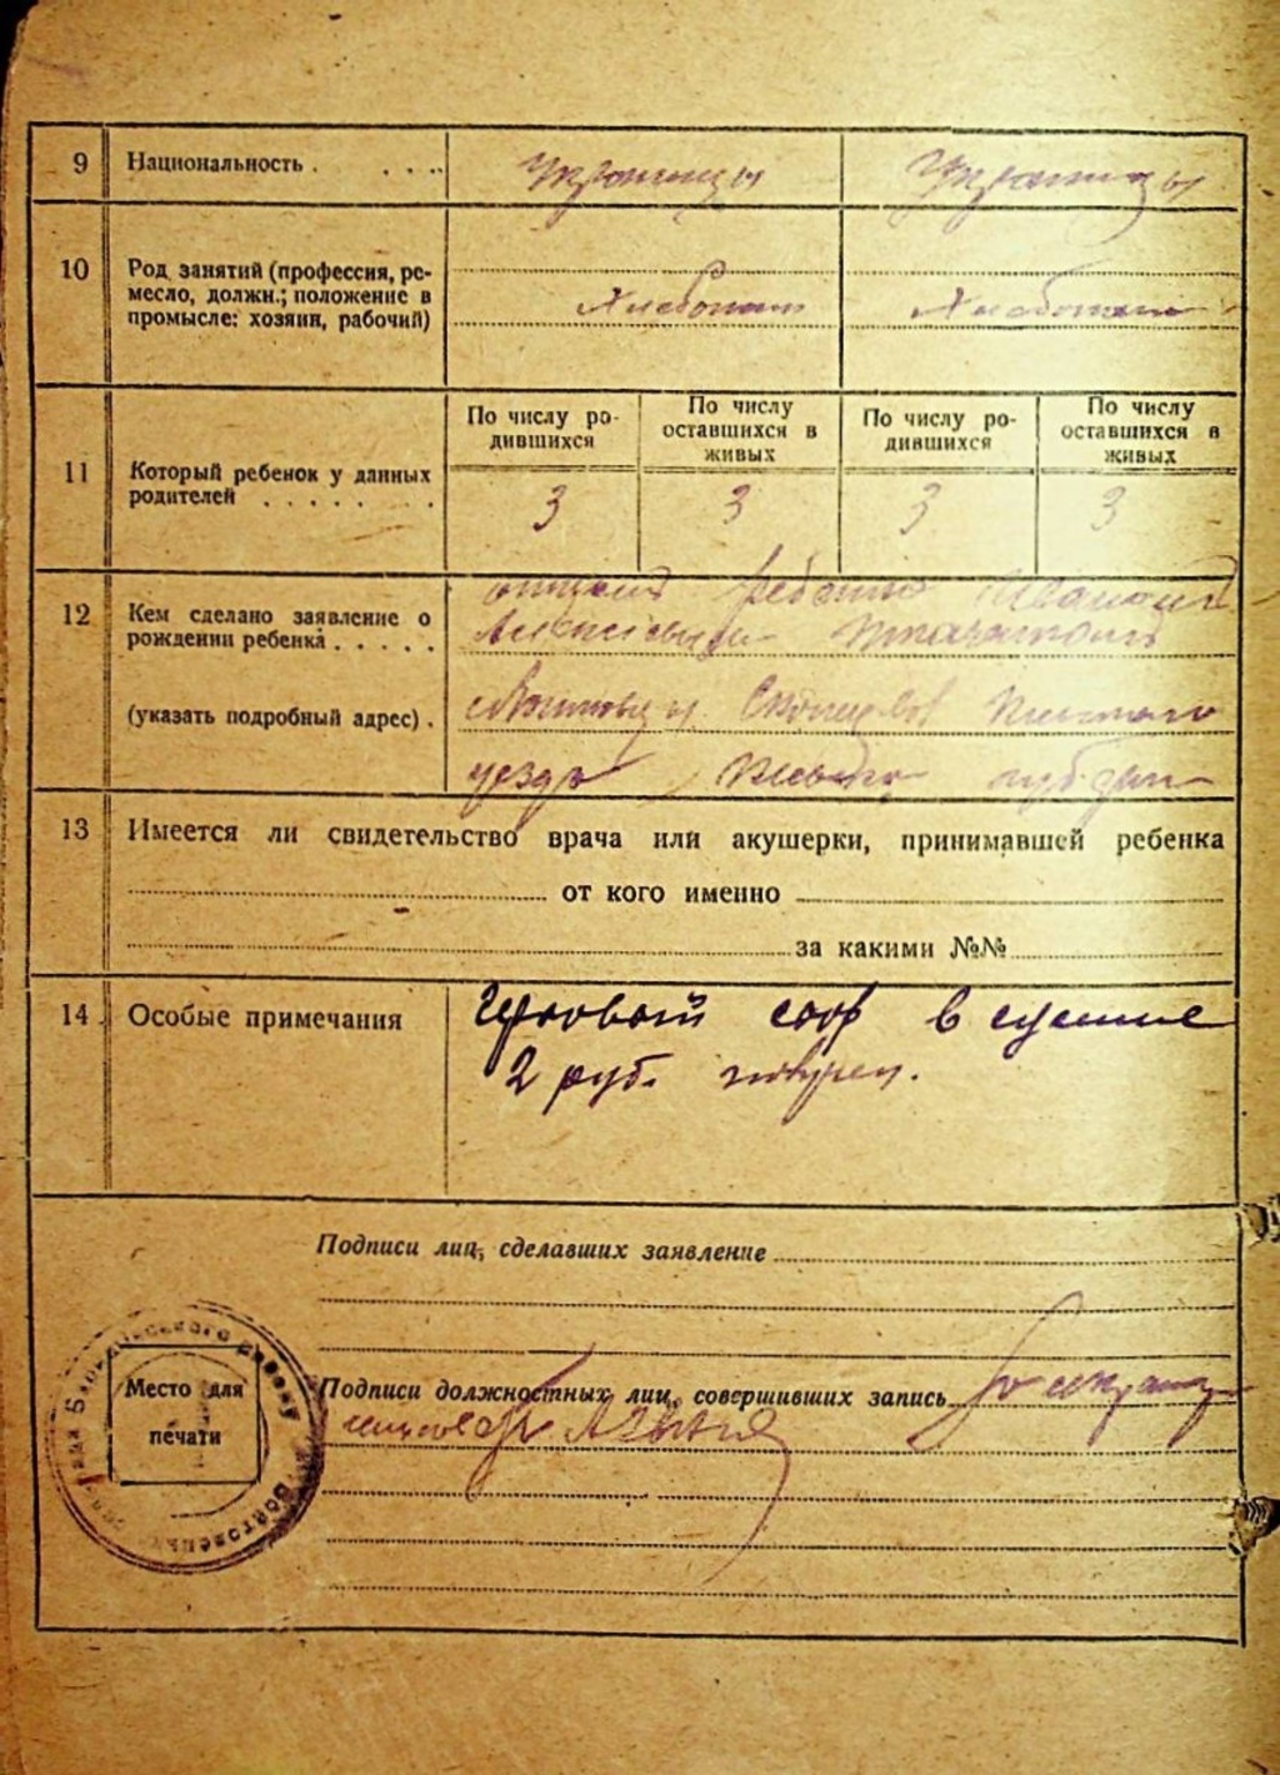 9 Национальность . . . . Украинцы Украинцы
10 Род занятий (профессия, ре-
месло, должн.; положение в
промысле: хозяин, рабочий)
Хлебопаш Хлебопаш
11 Который ребенок у данных
родителей . . . . . . .
По числу ро-
дившихся
По числу
оставшихся в
живых
По числу ро-
дившихся
По числу
оставшихся в
живых
3 3 3 3
12 Кем сделано заявление о
рождении ребенка . . . . .
(указать подробный адрес) .
отцом ребенка Иваном
Алексеевичем
уезда губерн
13 Имеется ли свидетельство врача или акушерки, принимавшей ребенка
от кого именно
за какими №№
14 Особые примечания
Гербовый сбор в сумме
2 руб.
Подписи лиц, сделавших заявление
Место для
печати
Подписи должностных лиц, совершивших запись